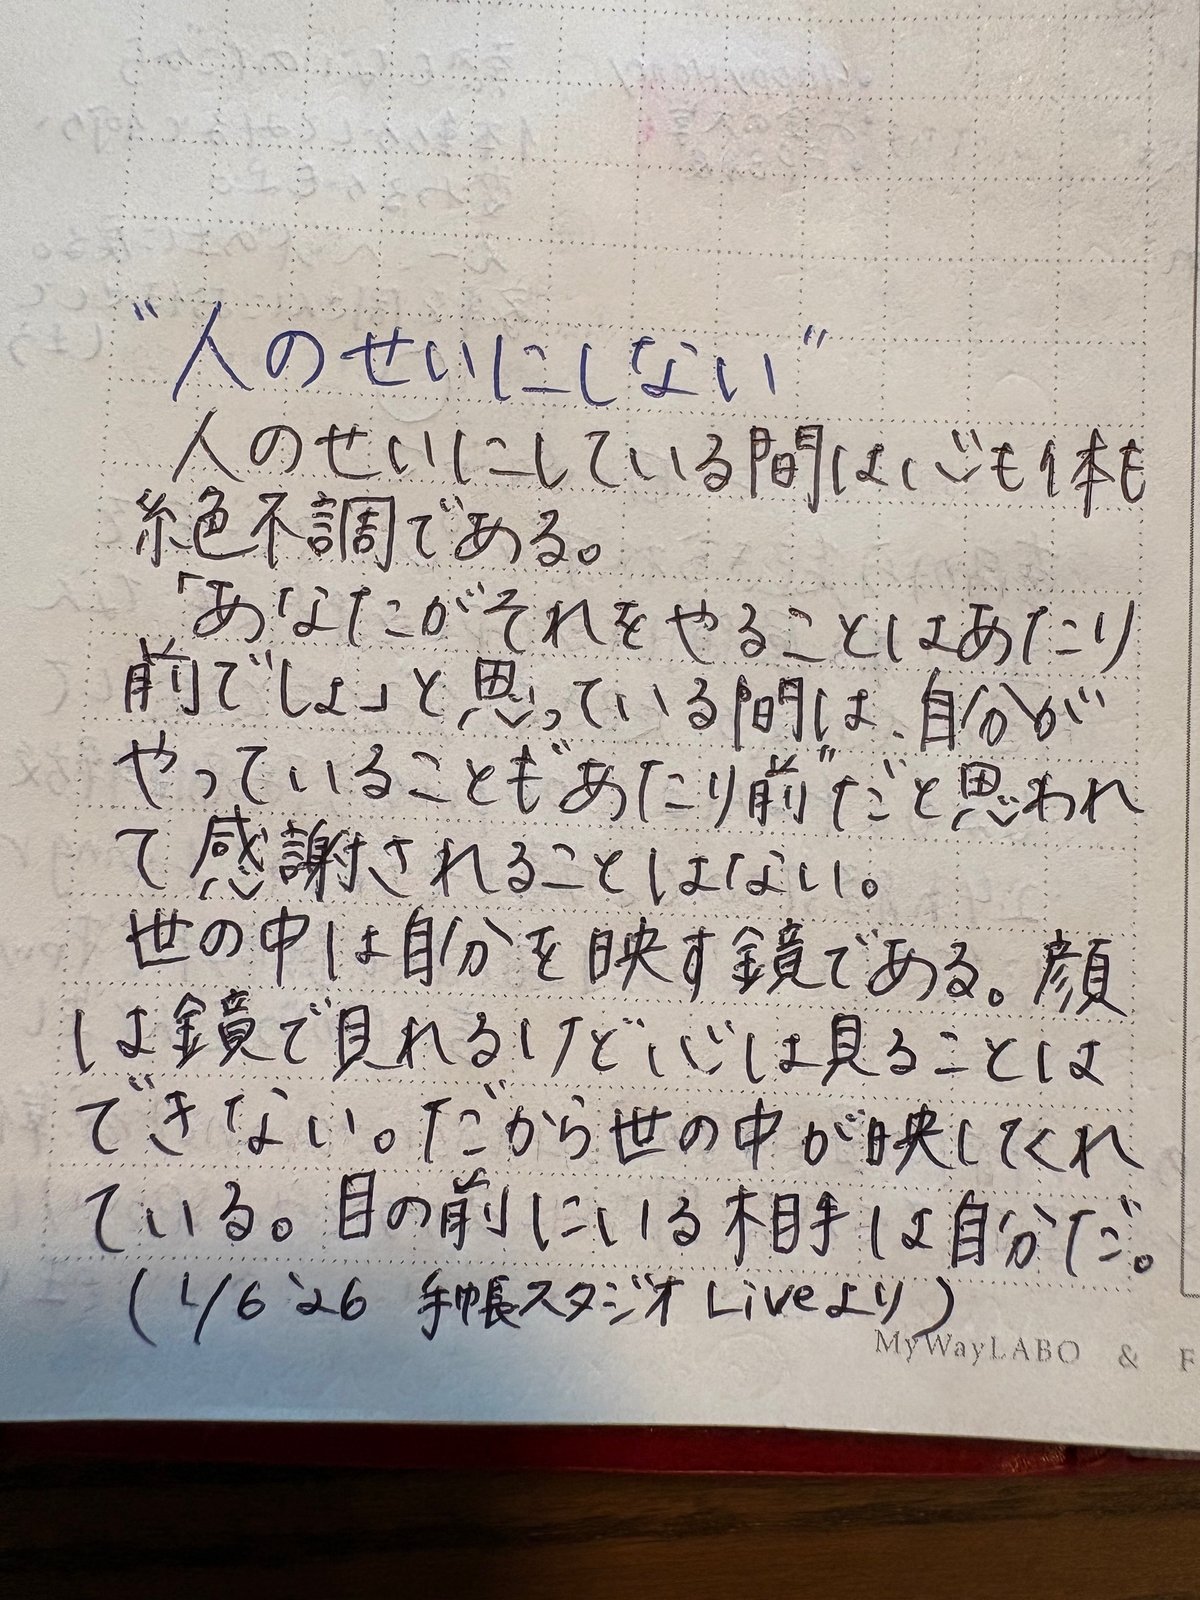 "人のせいにしない"
人のせいにしている間は心も体も
絶不調である。
「あなたがそれをやることはあたり
前でしょ」と思っている間は、自分が
やっていることも"あたり前"だと思われ
て感謝されることはない。
世の中は自分を映す鏡である。顔
は鏡で見れるけど心は見ることは
できない。だから世の中が映してくれ
ている。目の前にいる相手は自分だ。
(1/6 '26 手帳スタジオ Liveより)
MyWayLABO & F